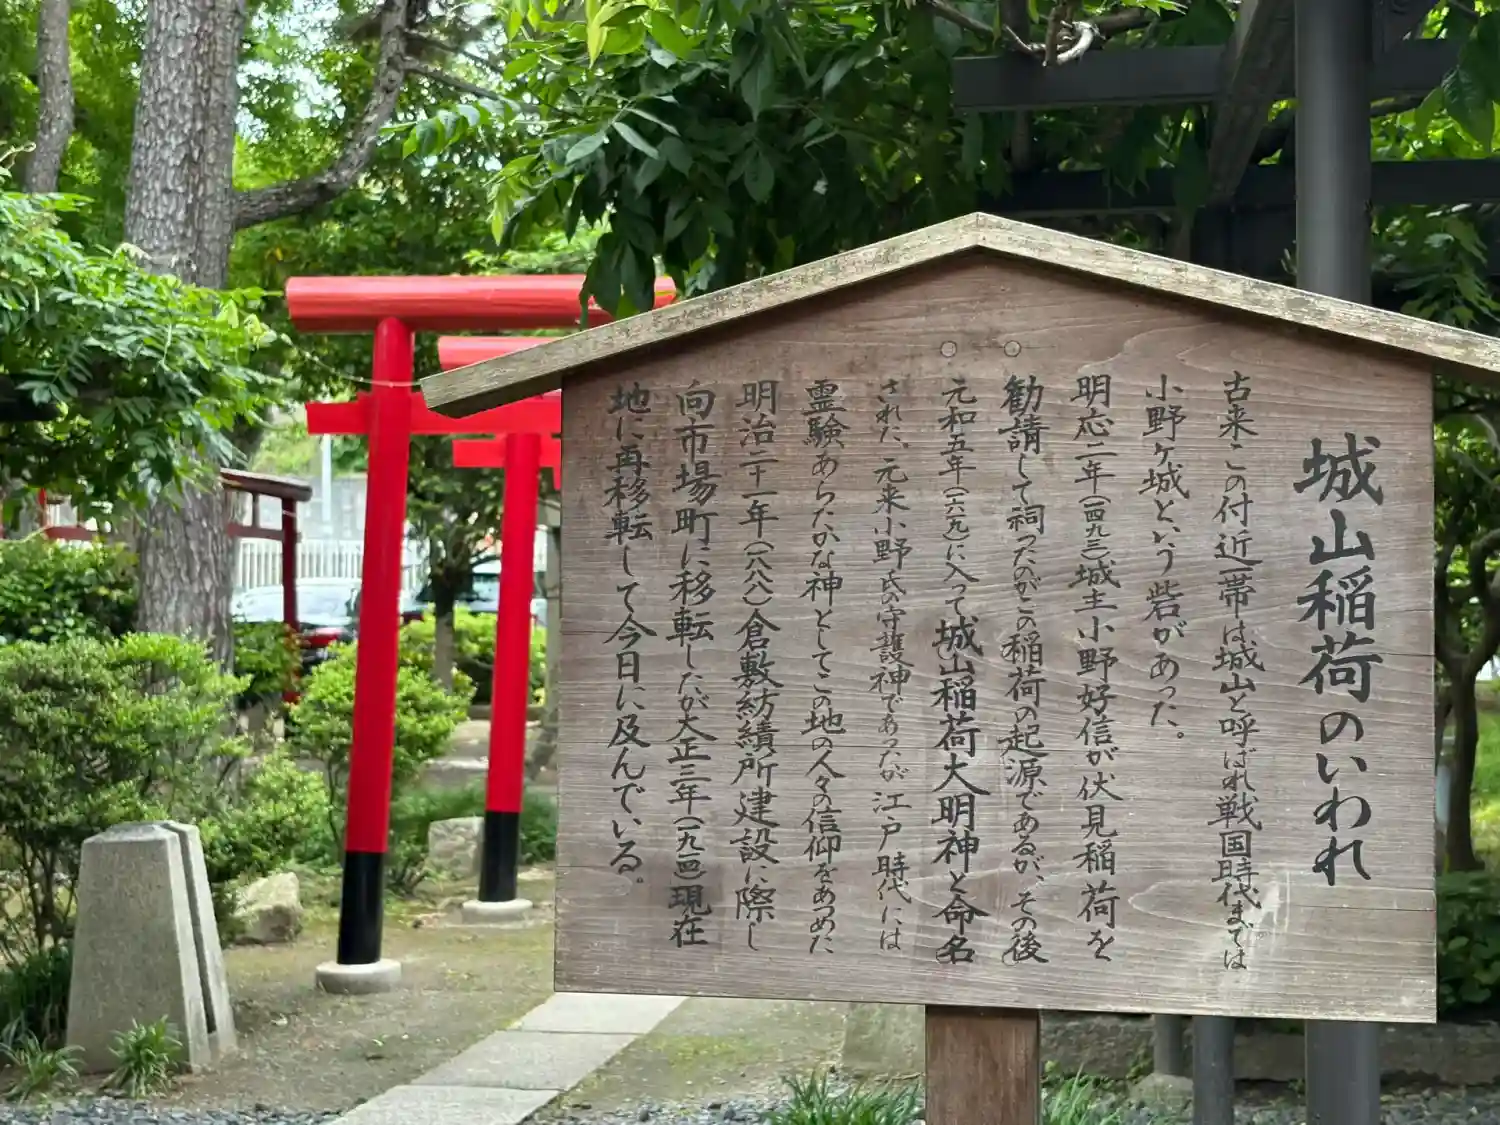 城山稲荷のいわれ
古来この付近一帯は城山と呼ばれ戦国時代までは
小野ヶ城という砦があった。
明応二年(一四九三)城主小野好信が伏見稲荷を
勧請して祠ったのがこの稲荷の起源であるが、その後
元和五年(一六一九)に入って城山稲荷大明神と命名
された、元来小野氏の守護神であったが江戸時代には
霊験あらたかな神としてこの地の人々の信仰をあつめた
明治二十一年(一八八八)倉敷紡績所建設に際し
向市場町に移転したが大正三年(一九一四)現在
地に再移転して今日に及んでいる。